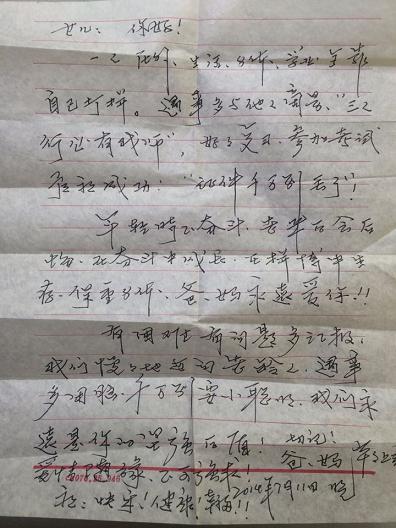 女儿、你好！
一人在外、生活、身体、学业全靠
自己打拼。遇事多与他人商量、“三人
行必有我师”，好好复习、参加考试
争取成功！“证件千万别丢了”！
年轻时不奋斗、老年后会后
悔、在奋斗中成长、在拼搏中生
存、保重身体、爸、妈永远爱你！！
有困难有问题多汇报，
我们慢慢地
遇事
多用脑、千万不要小聪明、我们永
远是你的坚强后盾！切记！
爱情 缘、不可强求！
爸、妈
祝、快乐！健康！幸福！！2014年7月11日晚